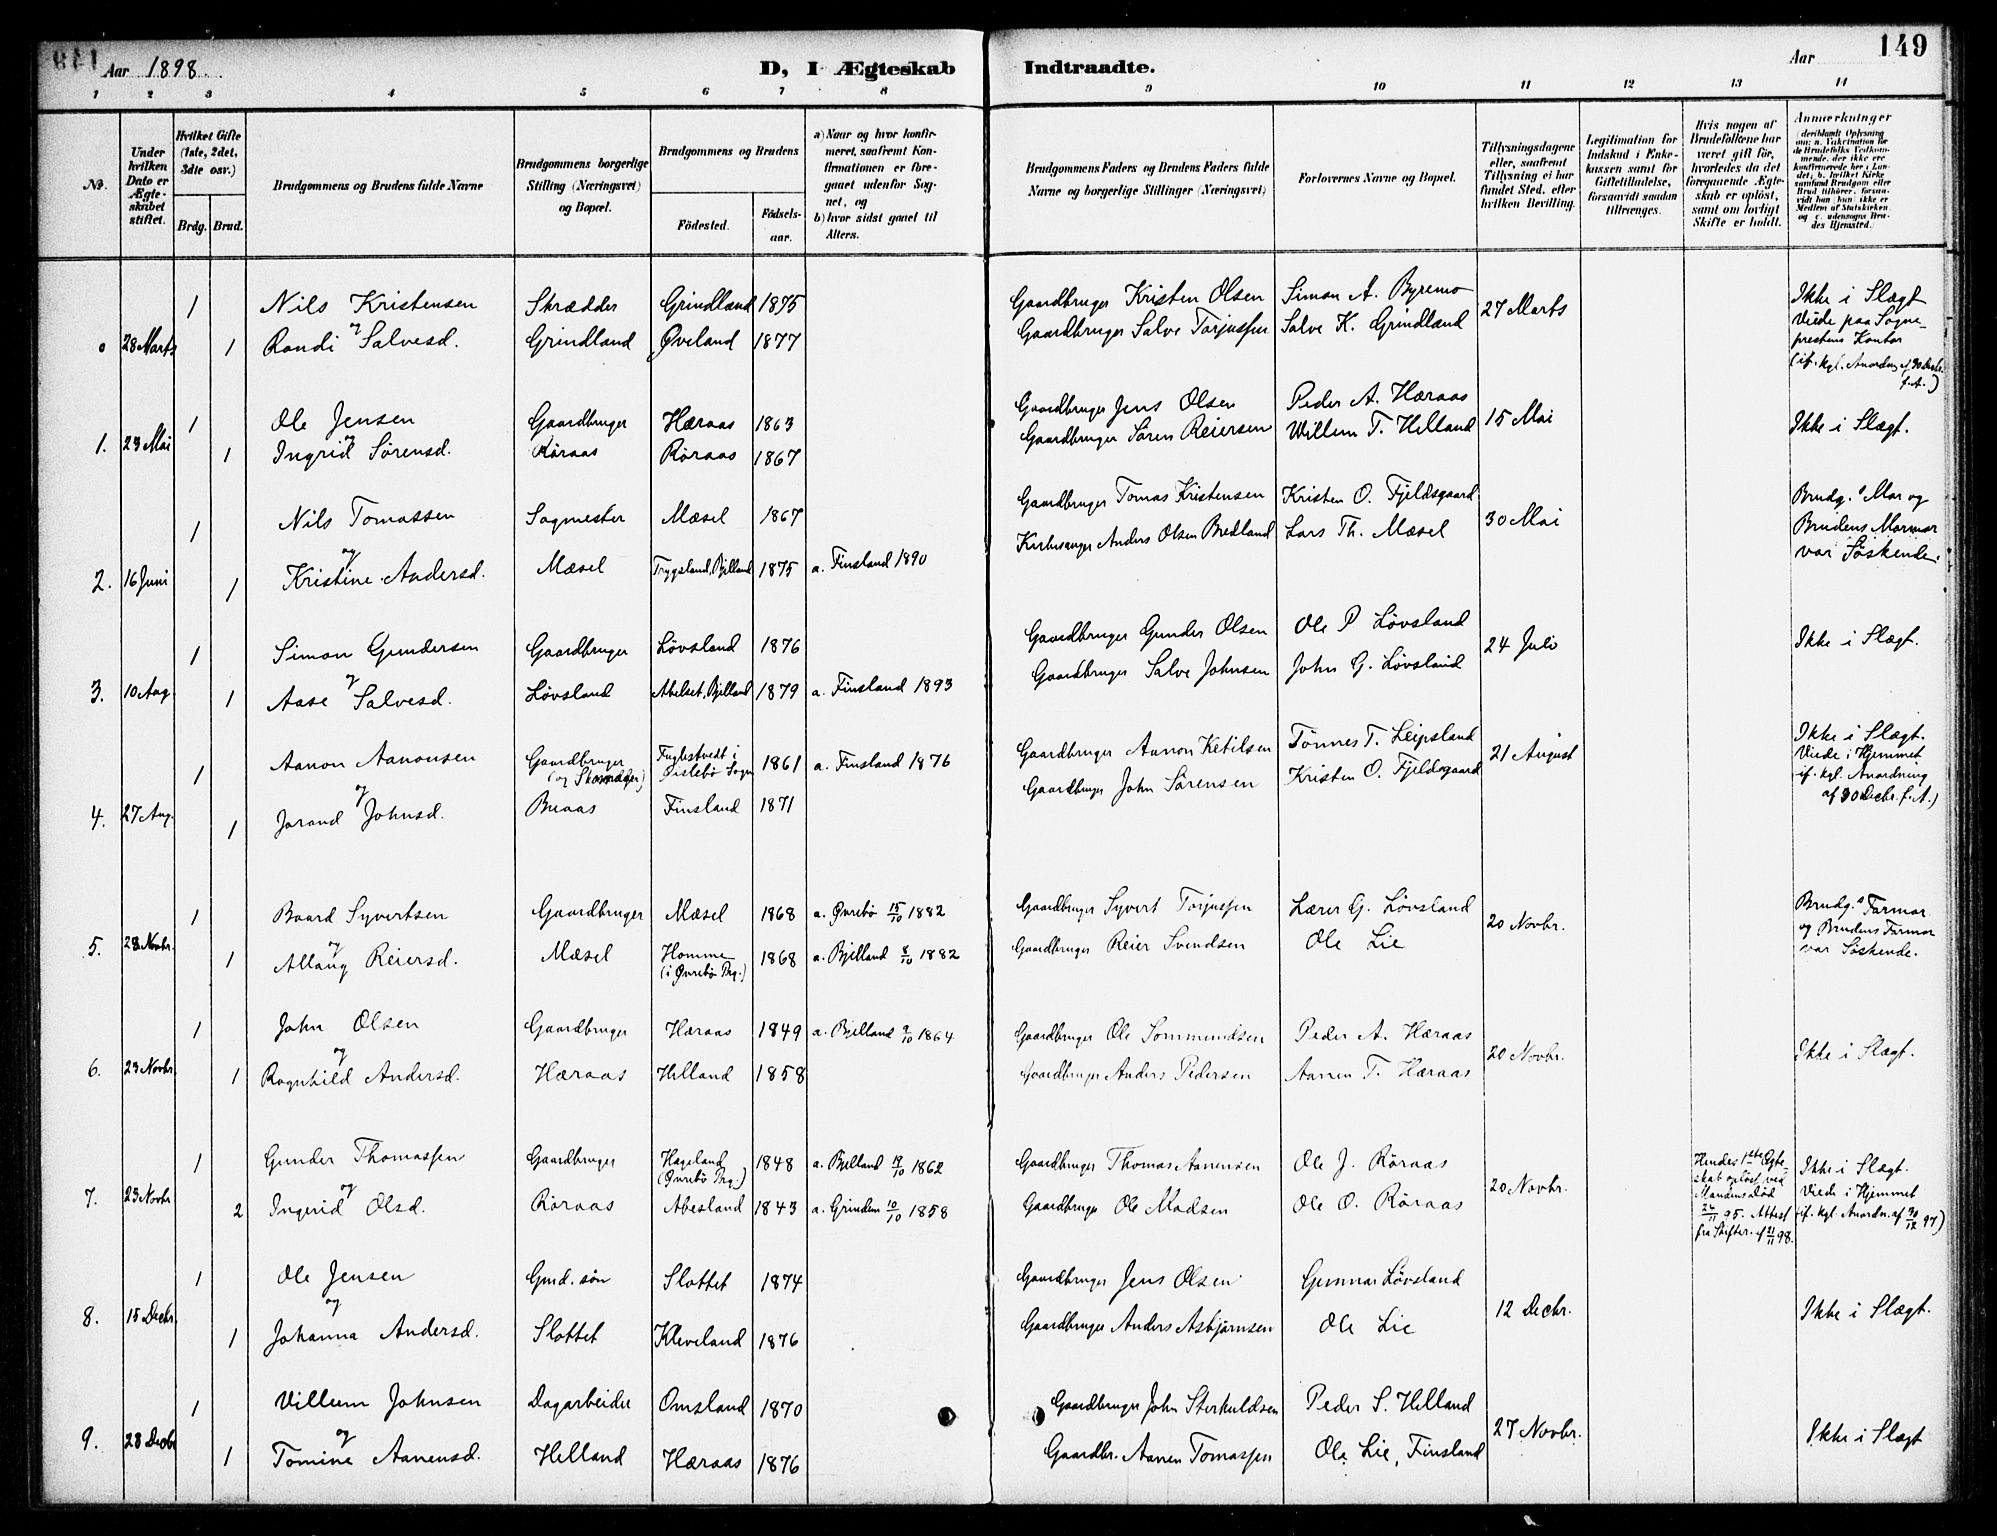 149
Aar 1898.
D, I Ægteskab Indtraadte.
Aar
1 2 3 4 5 6 7 8 9 10 11 12 13 14
No.
Under hvilken Dato er Ægteskabet stiftet.
Hvilket Gifte (1ste, 2det, 3die osv.)
Brdg. Brud.
Brudgommens og Brudens fulde Navne
Brudgommens borgerlige Stilling (Næringsvei) og Bopæl.
Brudgommens og Brudens
Födested. Födselsaar.
a) Naar og hvor konfirmeret, saafremt Konfirmationen er foregaaet udenfor Sognet, og
b) hvor sidst gaaet til Alters.
Brudgommens Faders og Brudens Faders fulde Navne og borgerlige Stillinger (Næringsvei)
Forlovernes Navne og Bopæl.
Tillysningsdagene eller, saafremt Tillysning ei har fundet Sted, efter hvilken Bevilling.
Legitimation for Indskud i Enkekassen samt for Giftetilladelse, forsaavidt saadan tiltrænges.
Hvis nogen af Brudefolkene har været gift för, hvorledes da det foregaaende Ægteskab er oplöst, samt om lovligt Skifte er holdt.
Anmerkninger
(deriblandt Oplysning om: a. Vakcination for de Brudefolks Vedkommende, der ikke ere konfirmerede her i Landet, b. hvilket Kirkesamfund Brudgom eller Brud tilhörer, forsaavidt han (hun) ikke er Medlem af Statskirken, og c. udensogns Brudes Hjemsted.)
1 Nils Kristensen Skrædder Grindland 1875 Gaardbruger Kristen Olsen Simon A. Byremo 27 Marts Ikke i Slægt
og
0 28 Marts 1 Randi Salvesd. Grindland Øveland 1877 Gaardbruger Salve Torjussen Salve K. Grindland Viede paa Sogneprestens Kontor
(if. kgl. Anordng af 30 Decbr. f.A.)
1 Ole Jensen Gaardbruger Hæraas 1863 Gaardbruger Jens Olsen Peder A. Hæraas 15 Mai Ikke i Slægt.
og
1. 23 Mai 1 Ingrid Sørensd. Røraas Røraas 1867 Gaardbruger Søren Reiersen Willem T. Helland
1 Nils Tomassen Sagmester Mæsel 1867 Gaardbruger Tomas Kristensen Kristen O. Fjeldsgaard 30 Mai Brudg.s Mor og
og
2. 16 Juni 1 Kristine Andersd. Mæsel Trygsland, Bjelland 1875 a. Finsland 1890 Kirkesanger Anders Olsen Bredland Lars Th. Mæsel Brudens Mormor
var Søskende.
1 Simon Gundersen Gaardbruger Løvsland 1876 Gaardbruger Gunder Olsen Ole P Løvsland 24 Juli Ikke i Slægt.
og
3. 10 Aug 1 Aase Salvesd. Løvsland Abelset, Bjelland 1879 a. Finsland 1893 Gaardbruger Salve Johnsen John G. Løvsland
1 Aanon Aanonsen Gaardbruger (og Skomager) Fuglestvedt i Øislebø Sogn 1861 a. Finsland 1876 Gaardbruger Aanon Ketilsen Tønnes T. Leipsland 21 August Ikke i Slægt.
og
4. 27 Aug. 1 Jorand Johnsd. Buaas Finsland 1871 Gaardbruger John Sørensen Kristen O. Fjeldsgaard Viede i Hjemmet
if. kgl. Anordning
af 30 Decbr. f.A.)
1 Baard Syvertsen Gaardbruger Mæsel 1868 a. Øvrebø 15/10 1882 Gaardbruger Syvert Torjussen Lærer G. Løvsland 20 Novbr. Brudg.s Farmor
og
5. 23 Novbr. 1 Allaug Reiersd. Mæsel Homme (i Øvrebø Prg.) 1868 a. Bjelland 8/10 1882 Gaardbruger Reier Svendsen Ole Lie og Brudens Farmor
var Søskende.
1 John Olsen Gaardbruger Hæraas 1849 a. Bjelland 9/10 1864 Gaardbruger Ole Sommundsen Peder A. Hæraas 20 Novbr. Ikke i Slægt.
og
6. 23 Novbr 1 Ragnhild Andersd. Hæraas Helland 1858 Gaardbruger Anders Pedersen Aanen T. Hæraas
1 Gunder Thomassen Gaardbruger Hageland (Øvrebø Prg.) 1848 a. Bjelland 19/10 1862 Gaardbruger Thomas Aanensen Ole J. Røraas 20 Novbr. Hendes 1ste Ægteskab opløst ved Mandens død 26/11 95. Attest fra Skifter. af 21/11 98. Ikke i Slægt.
og
7. 23 Novbr 2 Ingerid Olsd. Røraas Abesland 1843 a. Grindem 10/10 1858 Gaardbruger Ole Madsen Ole O. Røraas Viede i Hjemmet
(if. kgl. Anordn. af 30/12 97)
1 Ole Jensen Grd. søn Slottet 1874 Gaardbruger Jens Olsen Gunnar Løvsland 12 Decbr. Ikke i Slægt.
og
8. 15 Decbr. 1 Johanna Andersd. Slottet Kleveland 1876 Gaardbruger Anders Asbjørnsen Ole Lie
1 Villum Johnsen Dagarbeider Omsland 1870 Gaardbruger John Sterkuldsen Peder S. Helland 27 Novbr. Ikke i Slægt
og
9. 28 Decbr 1 Tomine Aanensd. Helland Hæraas 1876 Gaardbr. Aanen Tomassen Ole Lie, Finsland